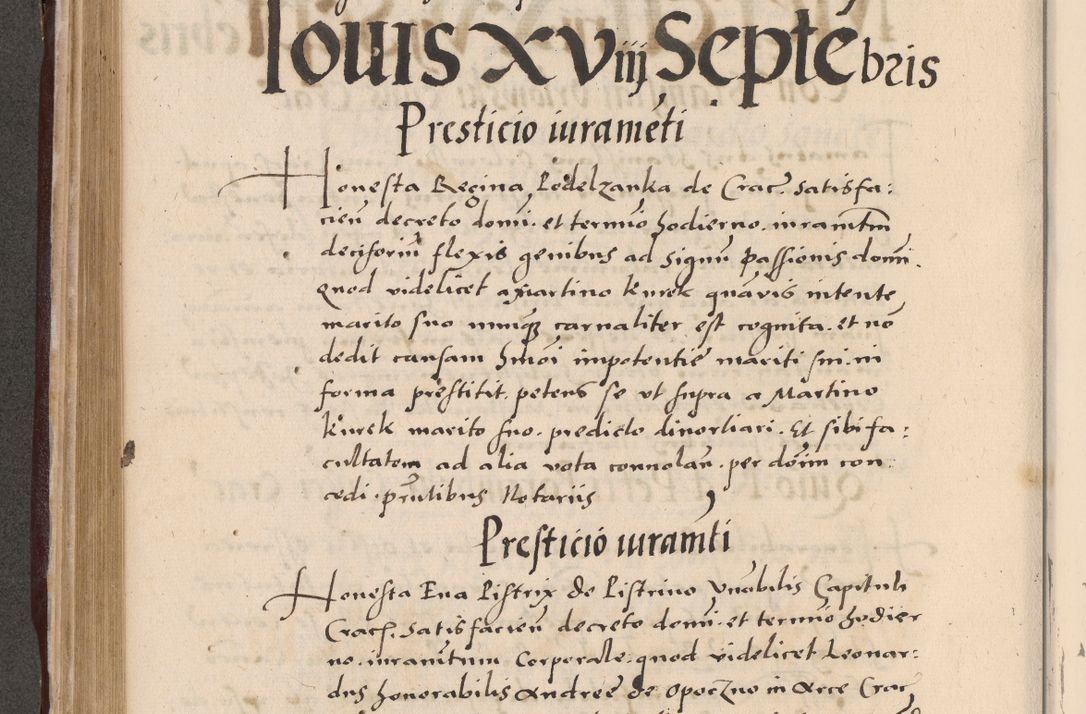 Iouis XViij Septẽbris
Presticio iuramẽti
Honesta Regina Podelzanka de Crac. Satisfa:
cieñ decreto domi. et termio hodierno. iuramtm
decisoriũ flexis genibus ad Signũ passionis domi.
Quod videlicet a Martino Kurek quãvis intente
marito suo nunq̃ carnaliter est cognita. et nõ
dedit causam hmõi impotentie mariti sui. in
forma prestitit. petens se vt supra a Martino
Kurek marito suo. predicto diuortiari. Et sibi fa:
cultatem ad alia vota conuolañ. per dõim con:
cedi. prñtibus Notariis
Presticiõ iuramti
Honesta Eua Pistrix de Pistrino Vnabilis Capituli
Crac. Satisfacieñ decreto domi. et termio hodier
no. iuramtum Corporale. quod videlicet Leonar:
dus honorabilis Andree de Opoczno in Arce Crac